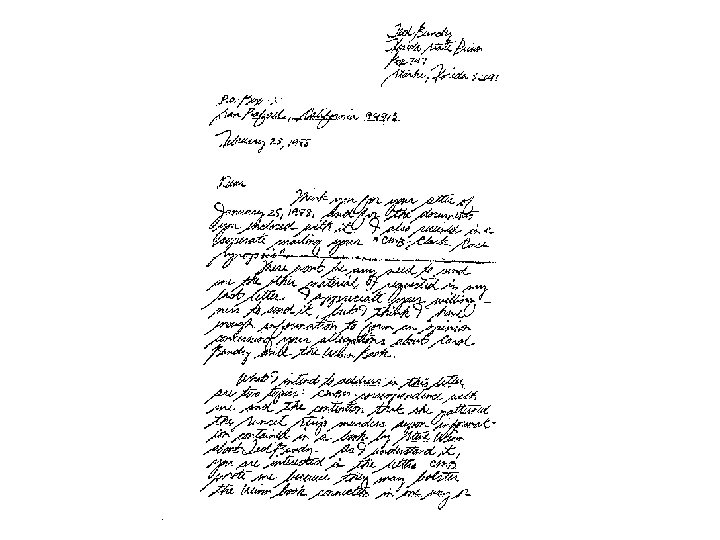 Ted Bundy
Florida State Prison
Box 747
Starke, Florida 32091
P.O. Box
San Rafael, California 94912
February 25, 1988
Dear
Thank you for your letter of
January 25, 1988, and for the documents
you enclosed with it. I also received in a
separate mailing your "CMB, Clark Case
Synopsis"
There won't be any need to send
me the other material I requested in my
last letter. I appreciate your willing-
ness to send it, but I think I have
enough information to form an opinion
concerning your allegations about Carol
Bundy and the Winn book.
What I intend to address in this letter
are two topics: CMB's correspondence with
me and the contention that she patterned
the Sunset Strip murders upon informat-
ion contained in a book by Steve Winn
about Ted Bundy. As I understand it,
you are interested in the letters CMB
wrote me because they may bolster
the Winn book connection in one way or